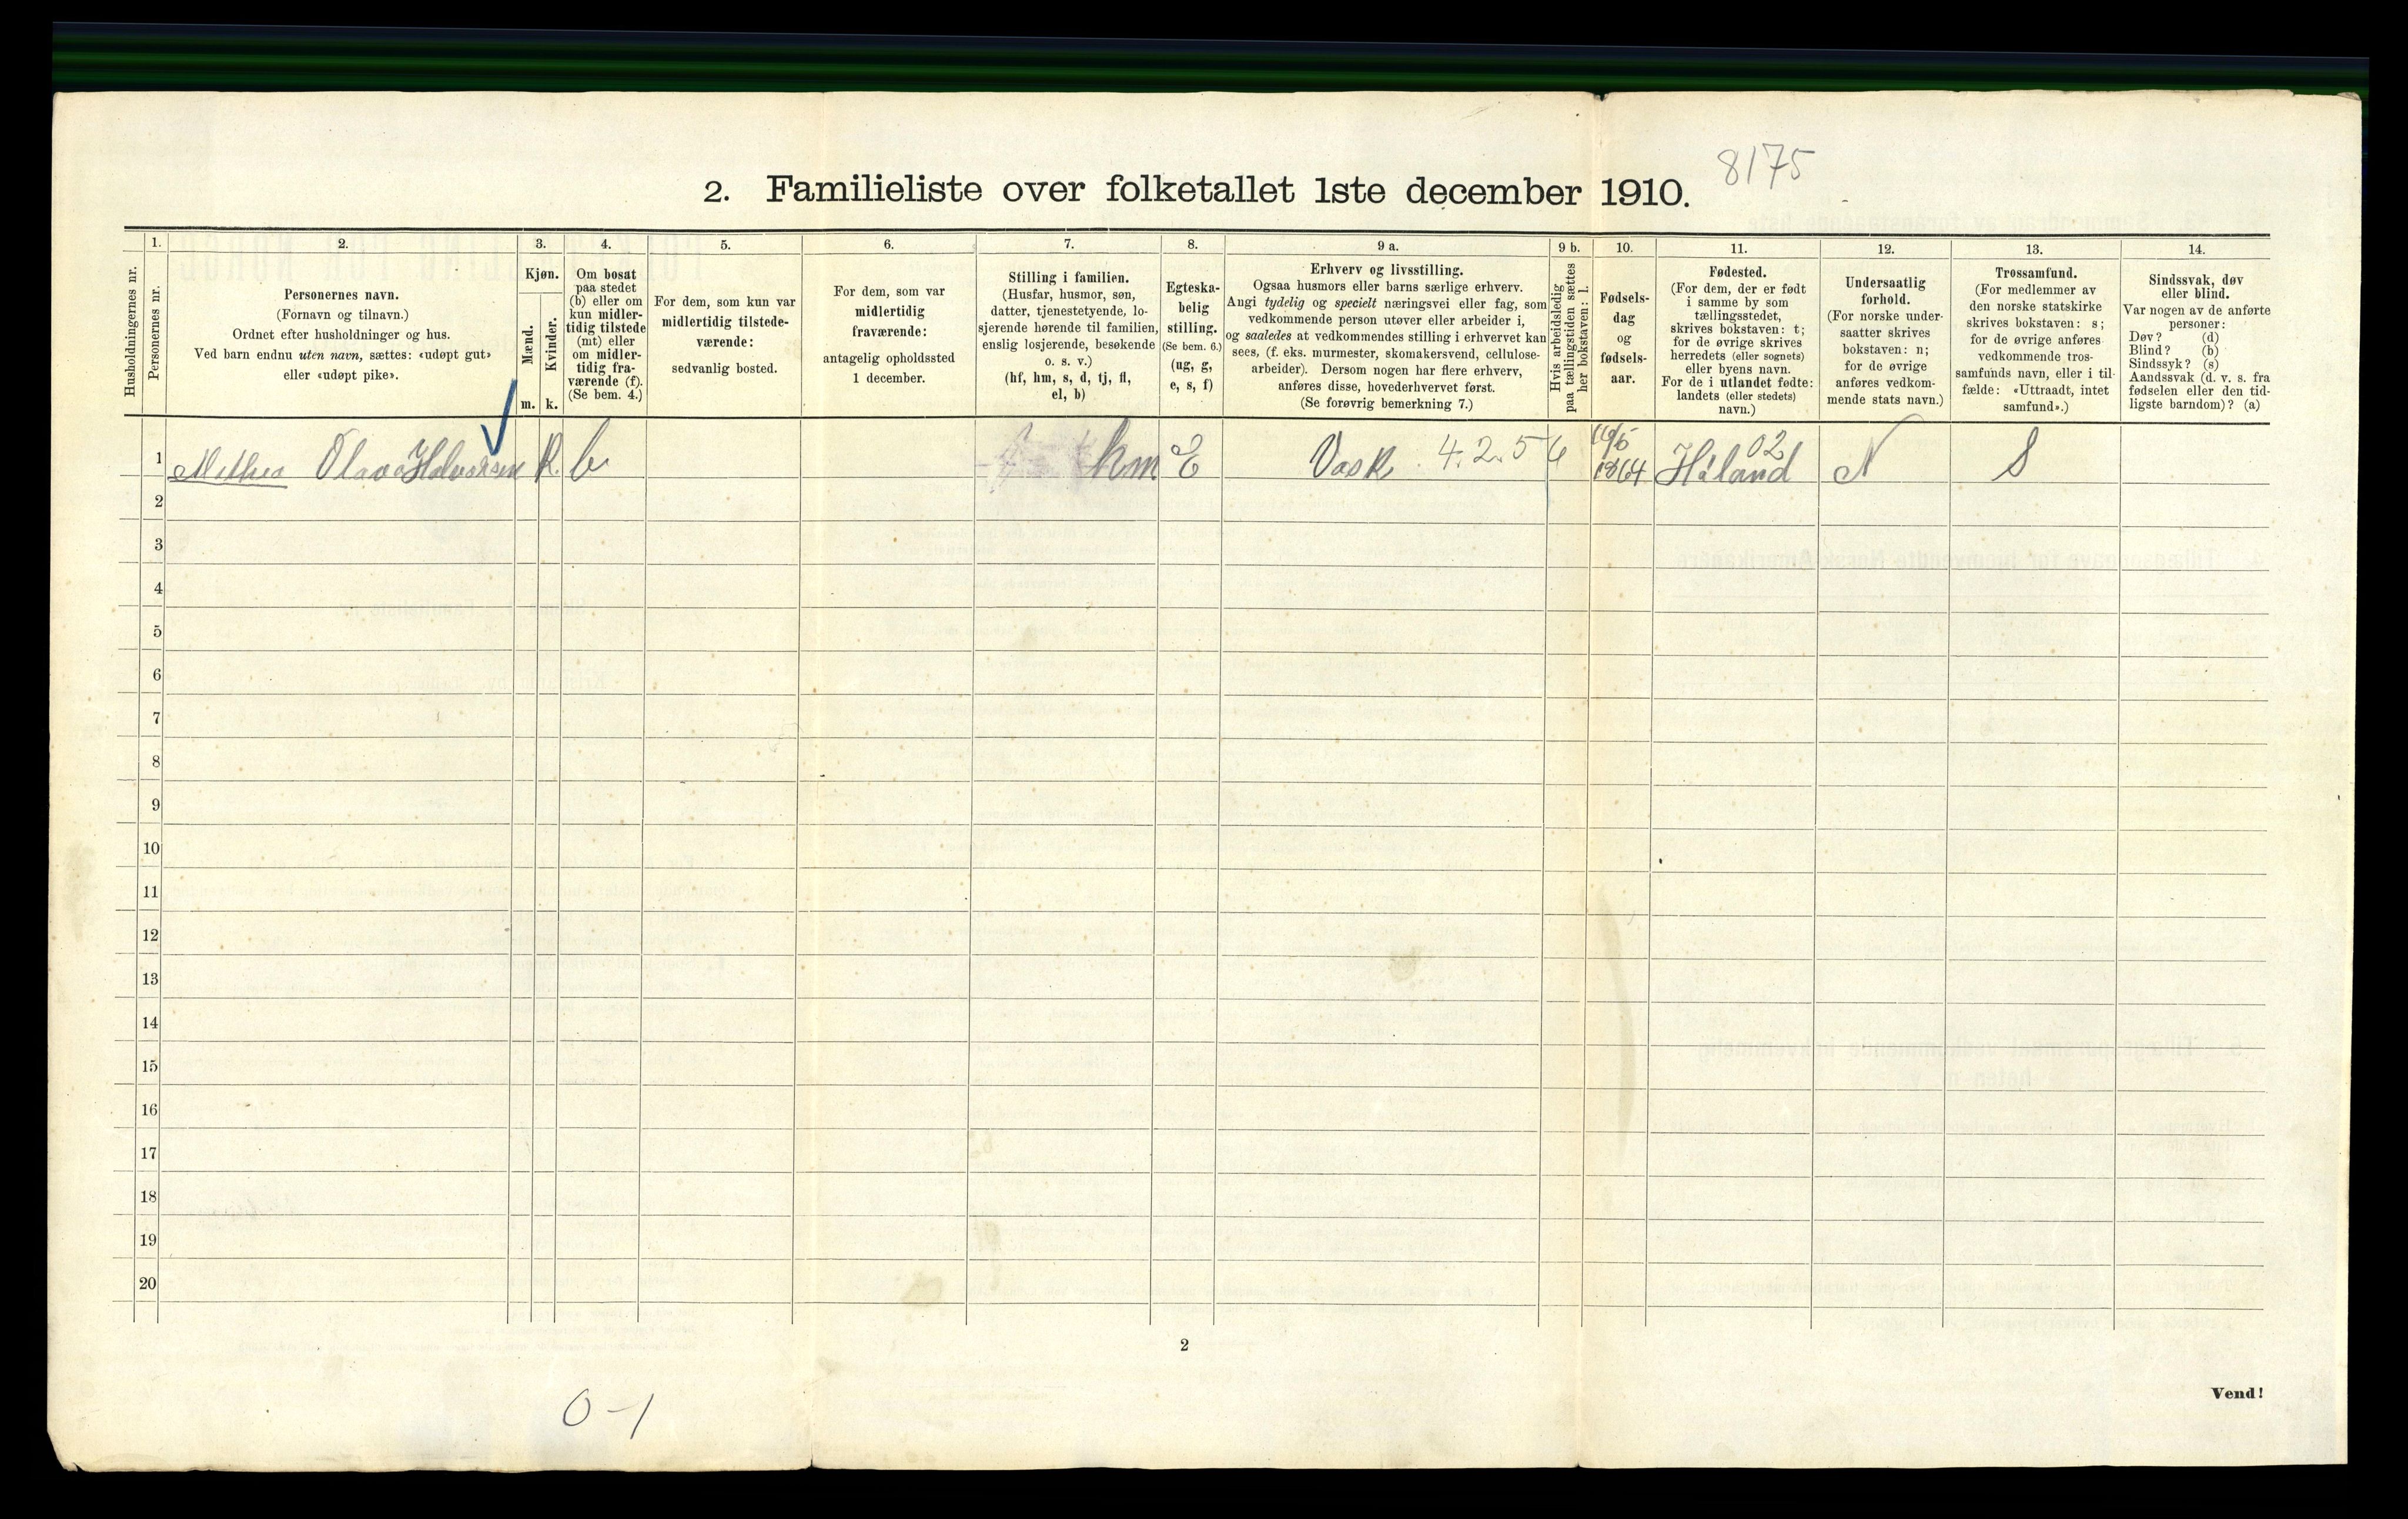 8175
2. Familieliste over folketallet 1ste december 1910.
Husholdningernes nr.
1.
Personernes nr.
2.
Personernes navn.
(Fornavn og tilnavn.)
Ordnet efter husholdninger og hus.
Ved barn endnu uten navn, sættes: «udøpt gut»
eller «udøpt pike».
3.
Kjøn.
Mænd.
Kvinder.
m. k.
4.
Om bosat
paa stedet
(b) eller om
kun midler-
tidig tilstede
(mt) eller
om midler-
tidig fra-
værende (f).
(Se bem. 4.)
5.
For dem, som kun var
midlertidig tilstede-
værende:
sedvanlig bosted.
6.
For dem, som var
midlertidig
fraværende:
antagelig opholdssted
1 december.
7.
Stilling i familien.
(Husfar, husmor, søn,
datter, tjenestetyende, lo-
sjerende hørende til familien,
enslig losjerende, besøkende
o. s. v.)
(hf, hm, s, d, tj, fl,
el, b)
8.
Egteska-
belig
stilling.
(Se bem. 6.)
(ug, g,
e, s, f)
9 a.
Erhverv og livsstilling.
Ogsaa husmors eller barns særlige erhverv.
Angi tydelig og specielt næringsvei eller fag, som
vedkommende person utøver eller arbeider i,
og saaledes at vedkommendes stilling i erhvervet kan
sees, (f. eks. murmester, skomakersvend, cellulose-
arbeider). Dersom nogen har flere erhverv,
anføres disse, hovederhvervet først.
(Se forøvrig bemerkning 7.)
9 b.
Hvis arbeidsledig
paa tællingstiden sættes
her bokstaven: l.
10.
Fødsels-
dag
og
fødsels-
aar.
11.
Fødested.
(For dem, der er født
i samme by som
tællingsstedet,
skrives bokstaven: t;
for de øvrige skrives
herredets (eller sognets)
eller byens navn.
For de i utlandet fødte:
landets (eller stedets)
navn.)
12.
Undersaatlig
forhold.
(For norske under-
saatter skrives
bokstaven: n;
for de øvrige
anføres vedkom-
mende stats navn.)
13.
Trossamfund.
(For medlemmer av
den norske statskirke
skrives bokstaven: s;
for de øvrige anføres
vedkommende tros-
samfunds navn, eller i til-
fælde: «Uttraadt, intet
samfund».)
14.
Sindssvak, døv
eller blind.
Var nogen av de anførte
personer:
Døv? (d)
Blind? (b)
Sindssyk? (s)
Aandssvak (d. v. s. fra
fødselen eller den tid-
ligste barndom)? (a)
1 Mathea Olava Halvorsen K. b hm E Vask 4.2.5 1864 Håland 02 N S
2
3
4
5
6
7
8
9
10
11
12
13
14
15
16
17
18
19
20
2
Vend!
0-1